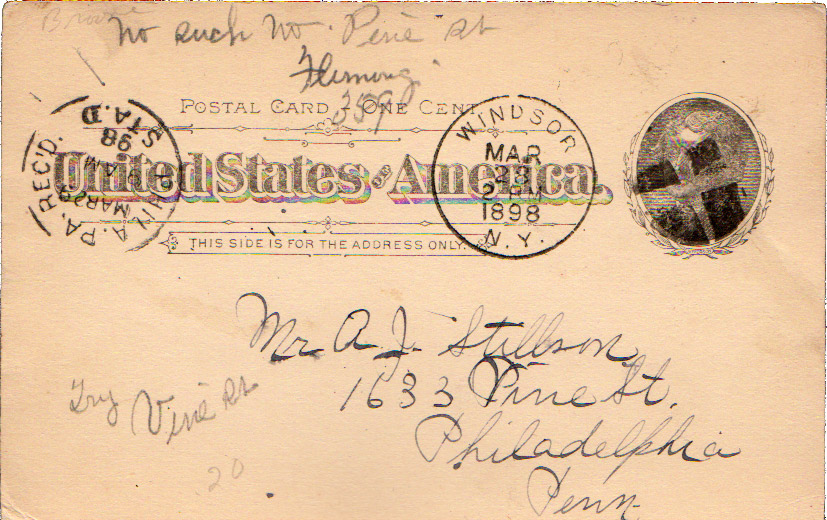 Brown
No such No. Pine St
Fleming
359
POSTAL CARD ONE CENT
United States of America.
THIS SIDE IS FOR THE ADDRESS ONLY.
PHILA. PA. REC'D.
MAR 29
AM
98
STA. D
WINDSOR
MAR
28
2 PM
1898
N.Y.
Mr A. J. Stillson
1633 Pine St.
Philadelphia
Penn
Try Vine St
20